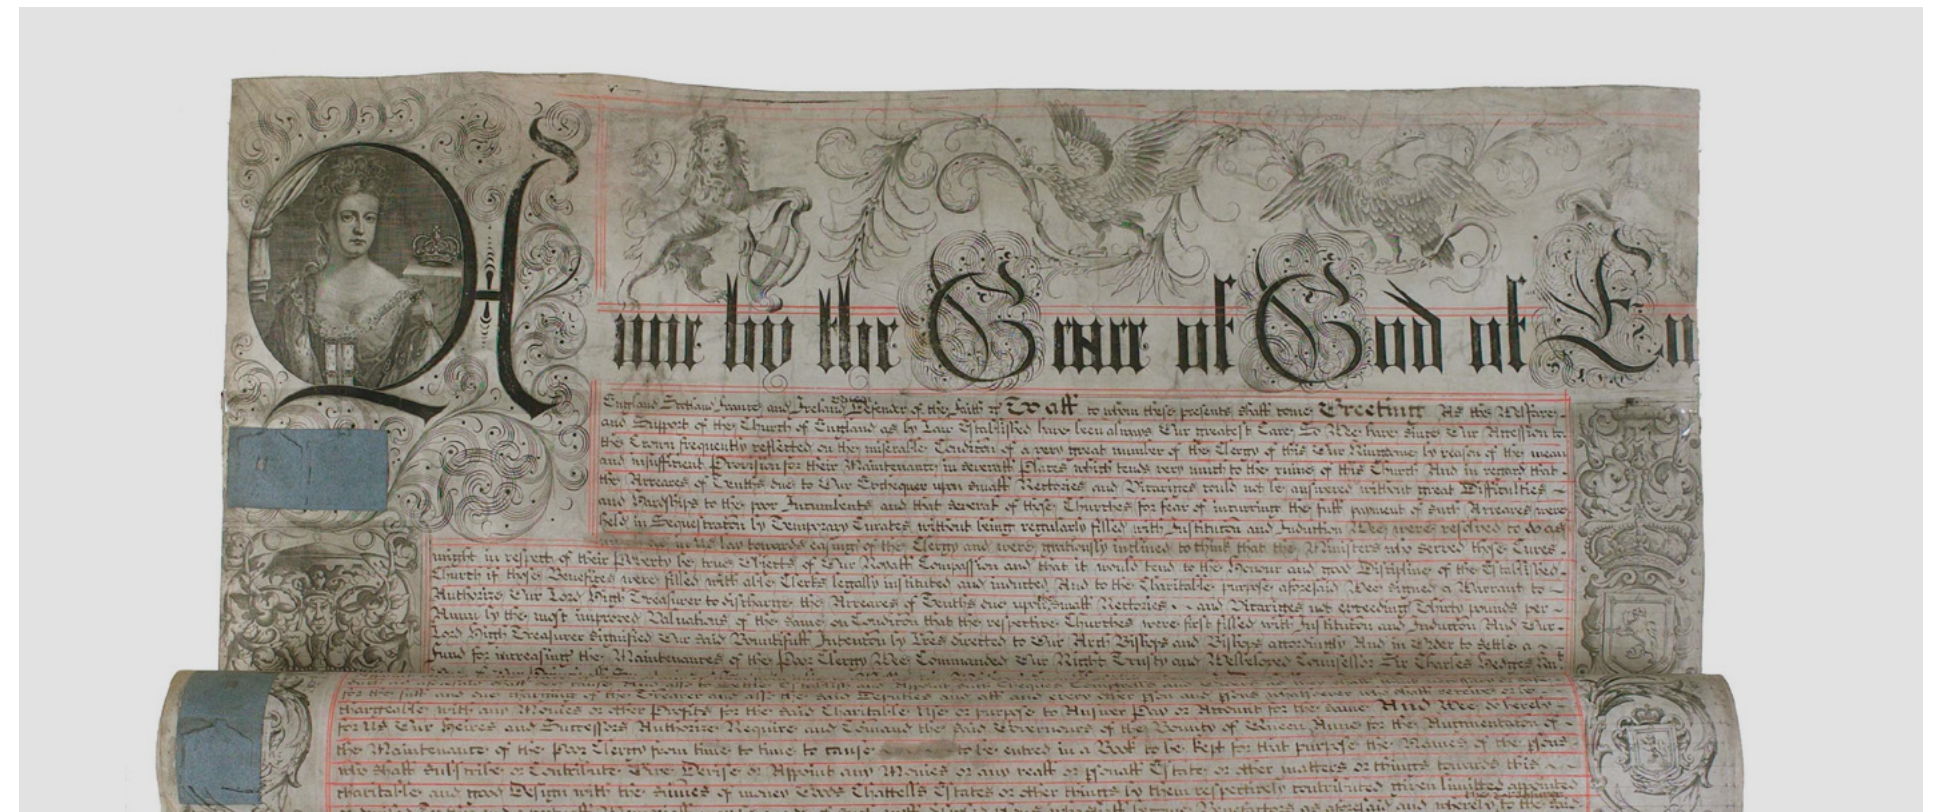 Anne by the Grace of God of En
England Scotland France and Ireland Defender of the Faith &c To all to whom these presents shall come Greeting As the Welfare
and Support of the Church of England as by Law Established have been always Our greatest Care So Wee have since Our Accession to
the Crown frequently reflected on the miserable Condition of a very great number of the Clergy of this Our Kingdome by reason of the mean
and insufficient Provision for their Maintenance in severall Places which tends very much to the ruine of this Church And in regard that
the Arreares of Tenths due to Our Exchequer upon small Rectories and Vicariges could not be answered without great Difficulties
and Hardships to the poor Incumbents and that several of those Churches for fear of incurring the full payment of such Arreares were
held in Sequestration by Temporary Curates without being regularly filled with Institution and Induction Wee were resolved to do as
in Us lay towards easing of the Clergy and were graciously inclined to think that the Ministers who served those Cures
might in respect of their Poverty be true Objects of Our Royall Compassion and that it would tend to the Honour and good Discipline of the Established
Church if those Benefices were filled with able Clerks legally instituted and inducted And to the Charitable purpose aforesaid Wee signed a Warrant to
Authorize Our Lord High Treasurer to discharge the Arreares of Tenths due upon small Rectories and Vicariges not exceeding Thirty pounds per
Annum by the most improved Valuations of the same on Condition that the respective Churches were first filled with Institution and Induction And Our
Lord High Treasurer signified Our said Bountifull Intention by Lres directed to Our Arch Bishops and Bishops accordingly And in Order to settle a
Fund for increasing the Maintenances of the Poor Clergy Wee Commanded Our Right Trusty and Welbeloved Counsellor Sir Charles Hedges
for the full and due charging of the and all the said and all and every other pson and psons whatsoever who shall receive or be
chargeable with any Monies or other Profits for the said Charitable Use or purpose to Answer Pay or Account for the same And Wee do hereby
for Us Our Heires and Successors Authorize Require and Comand the said Governours of the Bounty of Queen Anne for the Augmentation of
the Maintenance of the Poor Clergy from time to time to cause to be entred in a Book to be kept for that purpose the Names of the psons
who shall Subscribe or Contribute Give Devise or Appoint any Monies or any reall or psonall Estate or other matters or things towards this
charitable and good Design with the summes of money Goods Chattells Estates or other things by them respectively contributed given limitted appointed